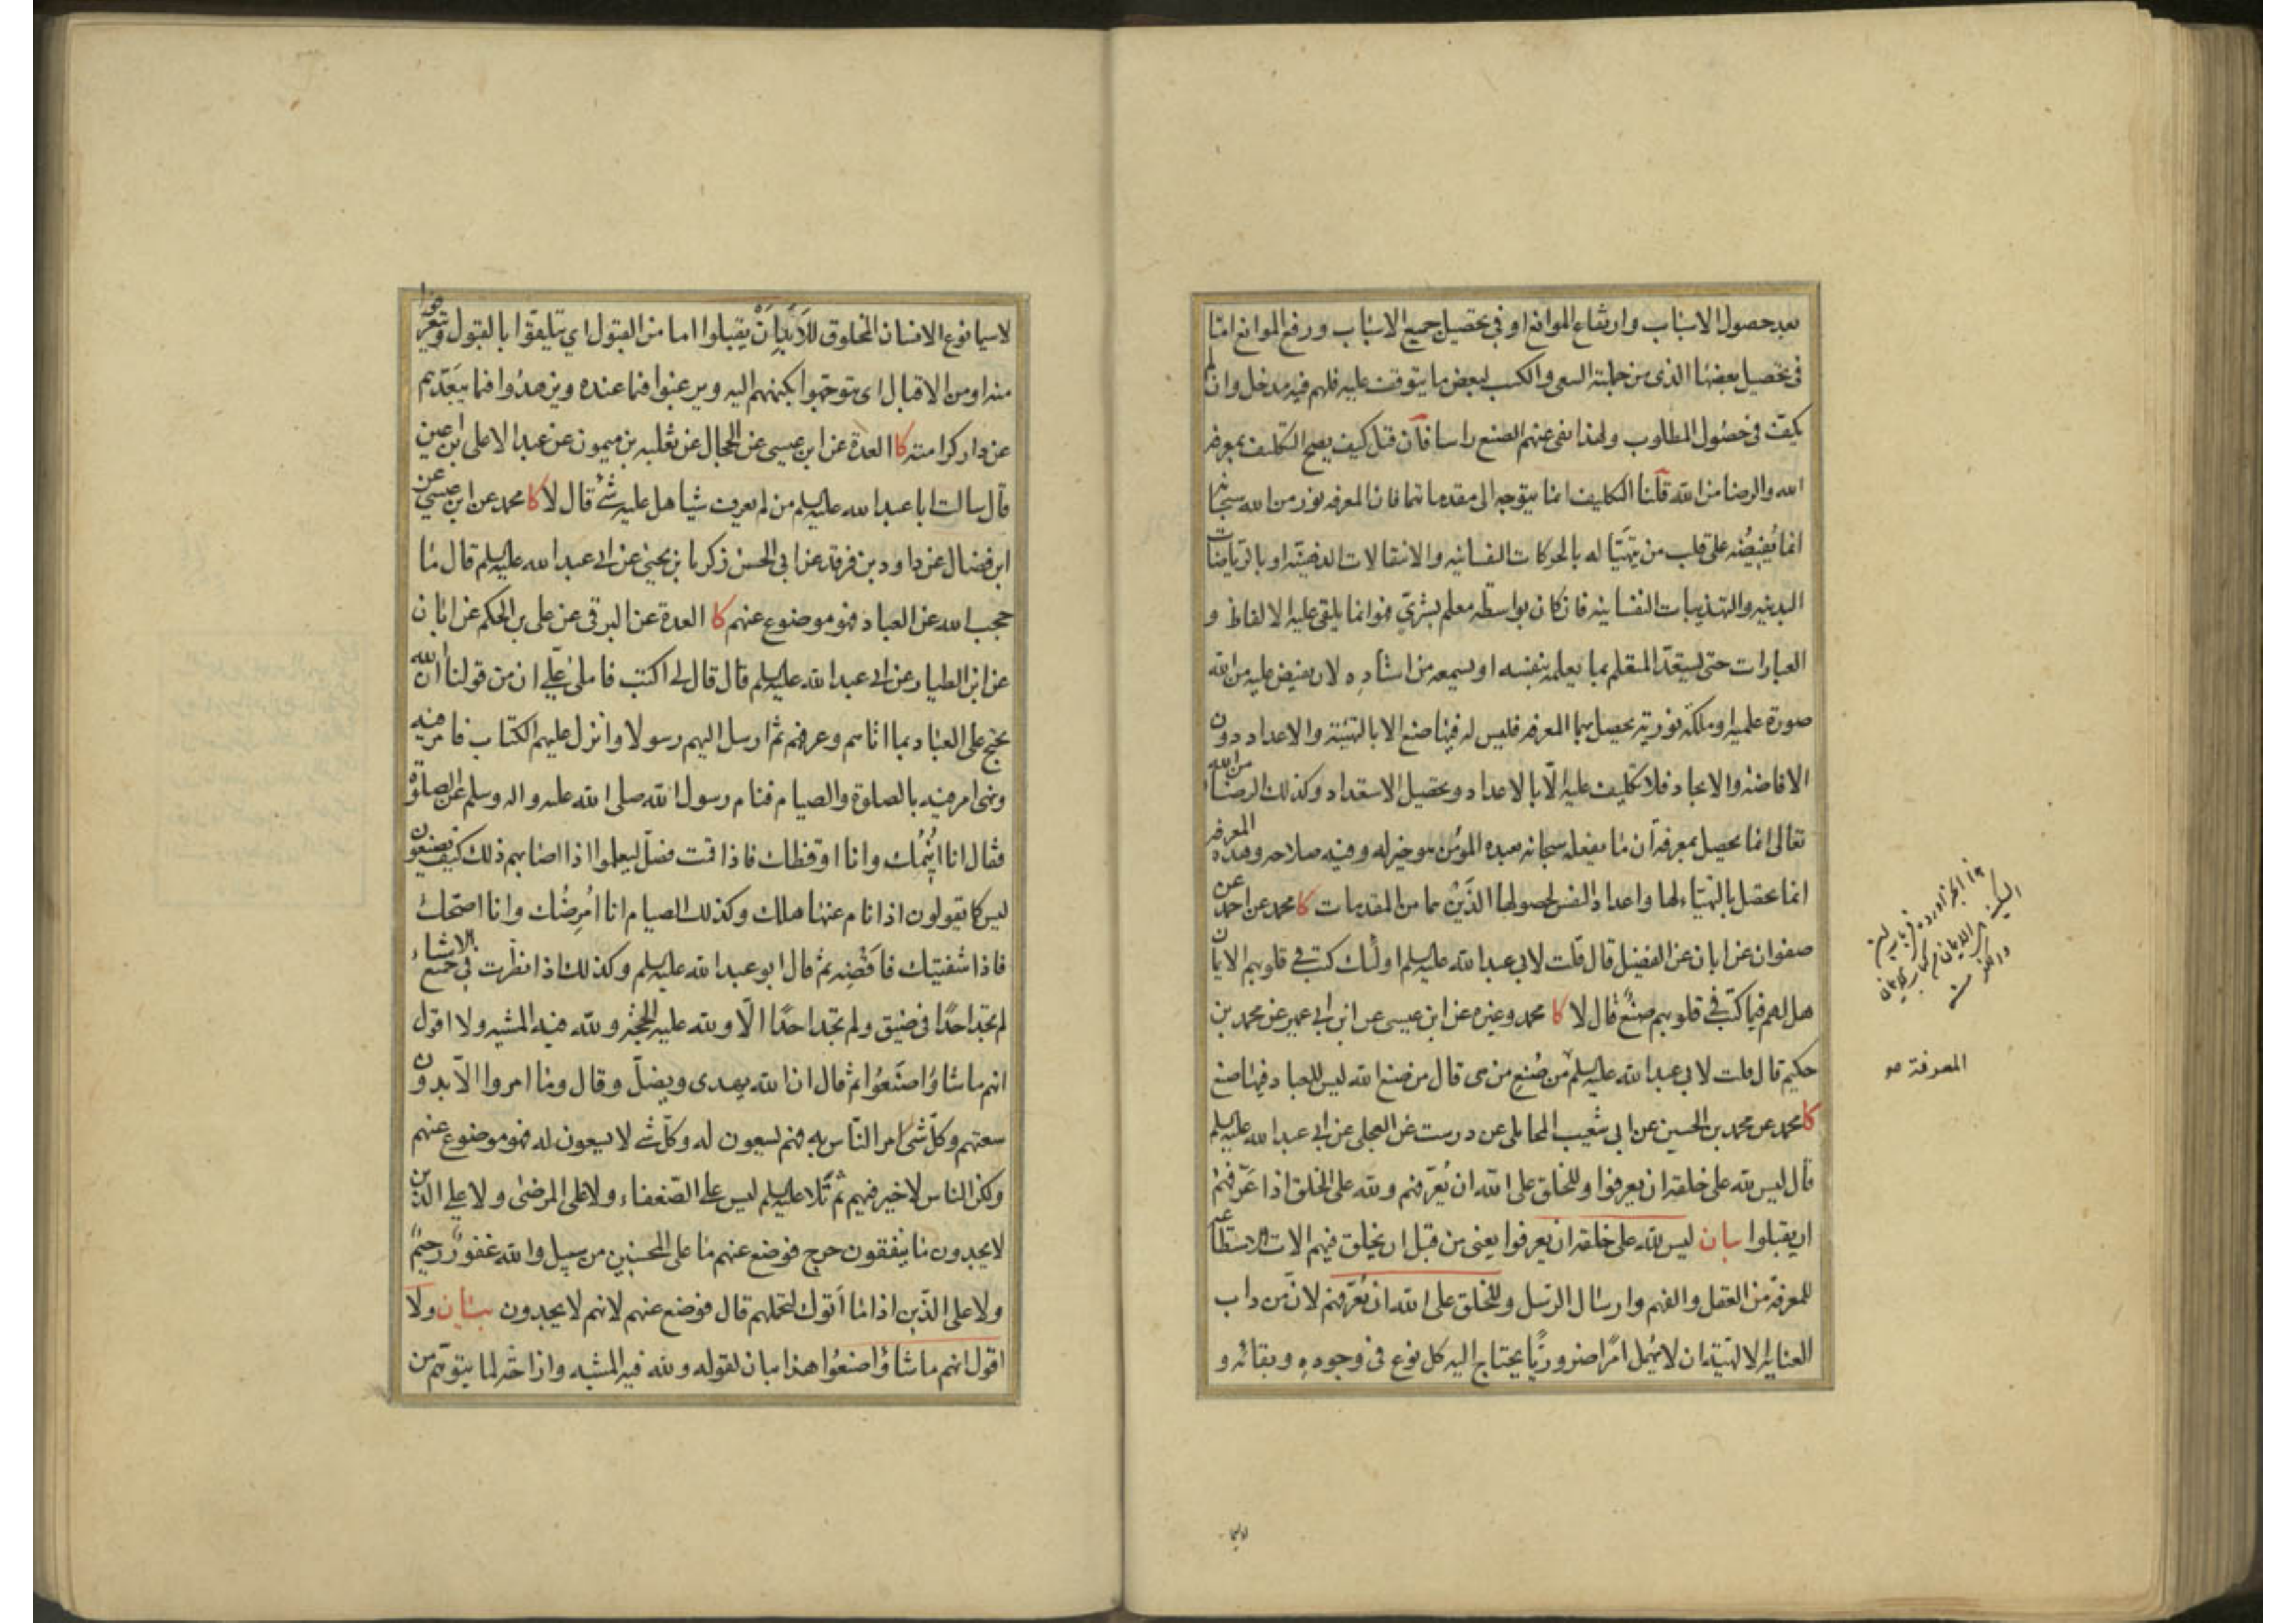 بعد حصول الاسباب وارتفاع الموانع او في تحصيل جميع الاسباب ورفع الموانع اما
في تحصيل بعضها الذي من جملته السعي والكسب لبعض ما يتوقف عليه فلهم فيه مدخل وان لم
يكف في حصول المطلوب ولهذا نفى عنهم الصنع راسا فان قيل كيف يصح التكليف بمعرفة
الله والرضا من الله قلنا التكليف انما يتوجه الى مقدماتها فان المعرفه نور من الله سبحانه
انما يفيضه على قلب من يتهيا له بالحركات النفسانيه والانتقالات الذهنية او بالرياضات
البدنيه والتهذيبات النفسانيه فان كان بواسطه معلم بشري فهو انما يلقي عليه الالفاظ و
العبارات حتى يستعد المتعلم بما يعلمه بنفسه او يسمعه من استاده لان يفيض عليه من الله
صورة علميه او ملكة نورية يحصل بها المعرفه فليس له فيها صنع الا بالتهيئة والاعداد دون
الافاضة والايجاد فلا تكليف عليه الا بالاعداد وتحصيل الاستعداد وكذلك الرضا من الله
تعالى انما يحصل بمعرفة ان ما يفعله سبحانه بعبده المؤمن هو خير له وفيه صلاحه وهذه المعرفه
انما تحصل بالتهياء لها واعداد النفس لحصولها الذين هما من المقدمات كا محمد عن احمد عن
صفوان عن ابان عن الفضيل قال قلت لابي عبد الله عليه السلم اولئك كتب في قلوبهم الايمان
هل لهم فيما كتب في قلوبهم صنع قال لا كا محمد وغيره عن ابن عيسى عن ابن ابي عمير عن محمد بن
حكيم قال قلت لابي عبد الله عليه السلم من صنع من هي قال من صنع الله ليس للعباد فيها صنع
كا محمد عن محمد بن الحسين عن ابي شعيب المحاملي عن درست عن العجلي عن ابي عبد الله عليه السلم
قال ليس لله على خلقه ان يعرفوا وللخلق على الله ان يعرفهم ولله على الخلق اذا عرفهم
ان يقبلوا بيان ليس لله على خلقه ان يعرفوا يعني من قبل ان يخلق فيهم الات الاستطاعه
للمعرفة من العقل والفهم وارسال الرسل وللخلق على الله ان يعرفهم لان من داب
العنايه الالهية ان لا يهمل امرا ضروريا يحتاج اليه كل نوع في وجوده وبقائه و
لاسيما
المعرفة
لا سيما نوع الانسان المخلوق للابد ان يقبلوا اما من القبول اي يتلقوا بالقبول ويتعرضوا
منه او من الاقبال اي يتوجهوا بكنههم اليه ويرغبوا فيما عنده ويزهدوا فيما يبعدهم
عن دار كرامته كا العدة عن ابن عيسى عن الحجال عن ثعلبه بن ميمون عن عبد الاعلى ابن عين
قال سالت ابا عبد الله عليه السلم من لم يعرف شيا هل عليه شئ قال لا كا محمد عن ابن عيسى عن
ابن فضال عن داود بن فرقد عن ابي الحسن زكريا بن يحيى عن ابي عبد الله عليه السلم قال ما
حجب الله عن العباد فهو موضوع عنهم كا العدة عن البرقي عن علي بن الحكم عن ابان
عن ابن الطيار عن ابي عبد الله عليه السلم قال قال لي اكتب فاملى علي ان من قولنا ان الله
يحتج على العباد بما اتاهم وعرفهم ثم ارسل اليهم رسولا وانزل عليهم الكتاب فامر فيه
ونهى امر فيه بالصلوة والصيام فنام رسول الله صلى الله عليه واله وسلم عن الصلوة
فقال انا انيمك وانا اوقظك فاذا قمت فصل ليعلموا اذا اصابهم ذلك كيف يصنعون
ليس كما يقولون اذا نام عنها هلك وكذلك الصيام انا امرضك وانا اصحك
فاذا شفيتك فاقضه ثم قال ابو عبد الله عليه السلم وكذلك اذا نظرت في جميع الاشياء
لم تجد احدا في ضيق ولم تجد احدا الا ولله عليه الحجة ولله فيه المشيه ولا اقول
انهم ما شاؤا صنعوا ثم قال ان الله يهدي ويضل وقال وما امروا الا بدون
سعتهم وكل شئ امر الناس به فهم يسعون له وكل شئ لا يسعون له فهو موضوع عنهم
ولكن الناس لا خير فيهم ثم تلا عليه السلم ليس على الضعفاء ولا على المرضى ولا على الذين
لا يجدون ما ينفقون حرج فوضع عنهم ما على المحسنين من سبيل والله غفور رحيم
ولا على الذين اذا ما اتوك لتحملهم قال فوضع عنهم لانهم لا يجدون بيان ولا
اقول انهم ما شاؤا صنعوا هذا بيان لقوله ولله فيه المشيه وازاحة لما يتوهم من